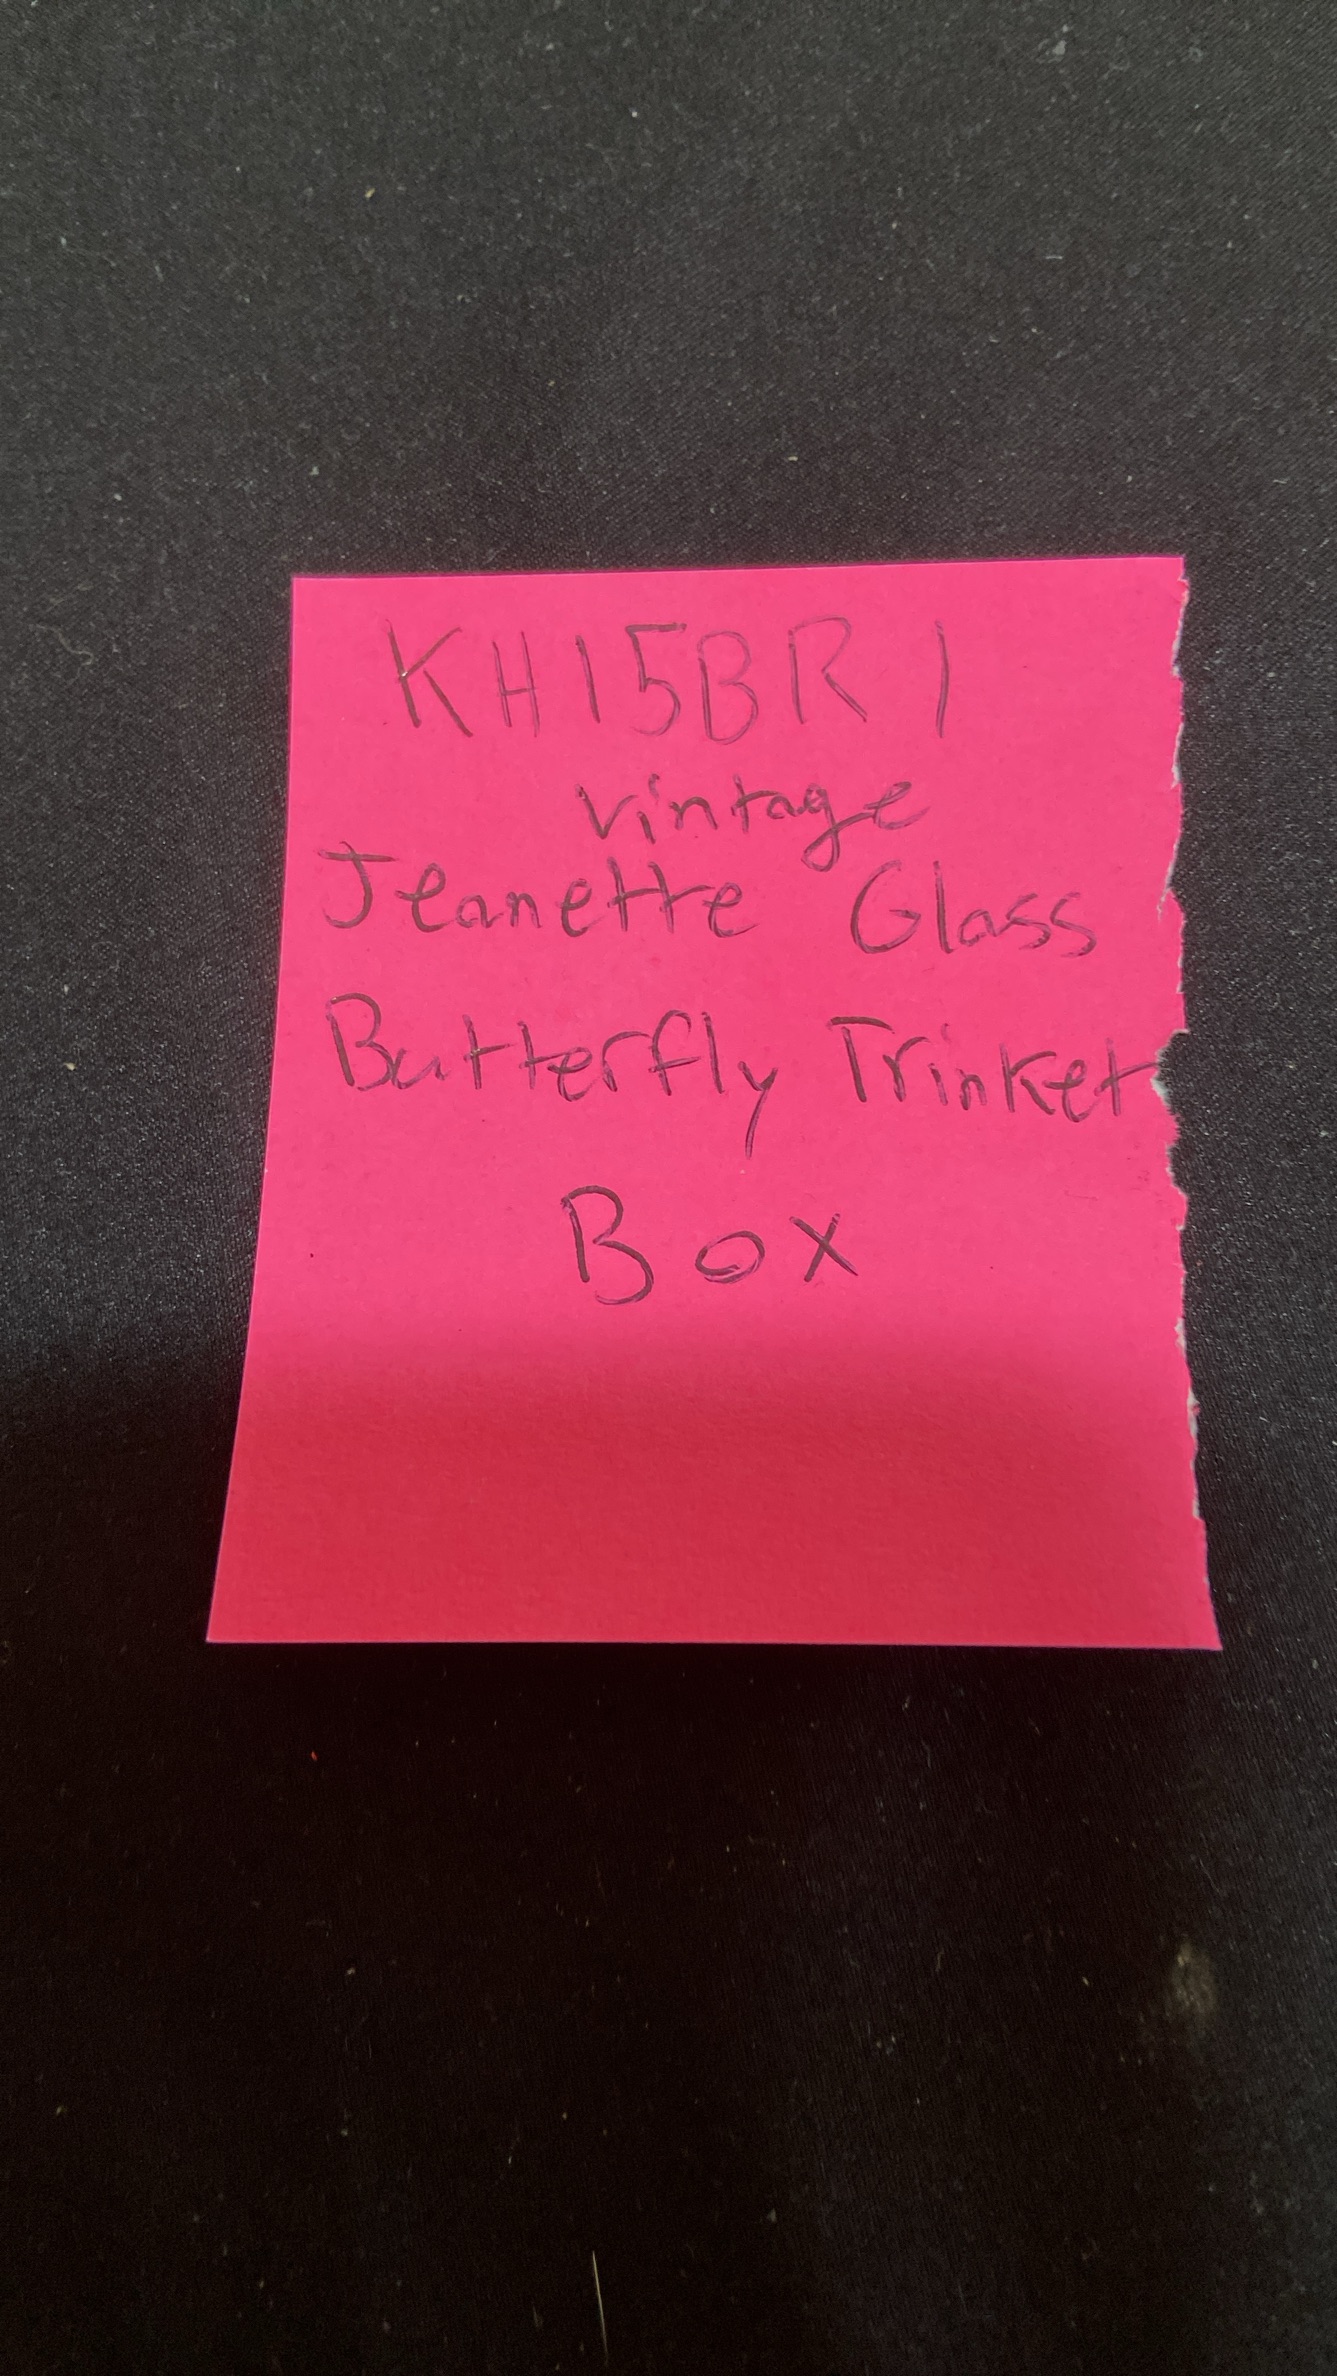 KH15BR1
vintage
Jeanette Glass
Butterfly Trinket
Box